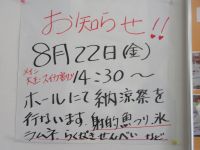 お知らせ!!
8月22日(金)
メイン
大玉スイカ割り 14:30〜
ホールにて納涼祭を
行ないます。射的 魚つり、氷
ラムネ らくがきせんべい など